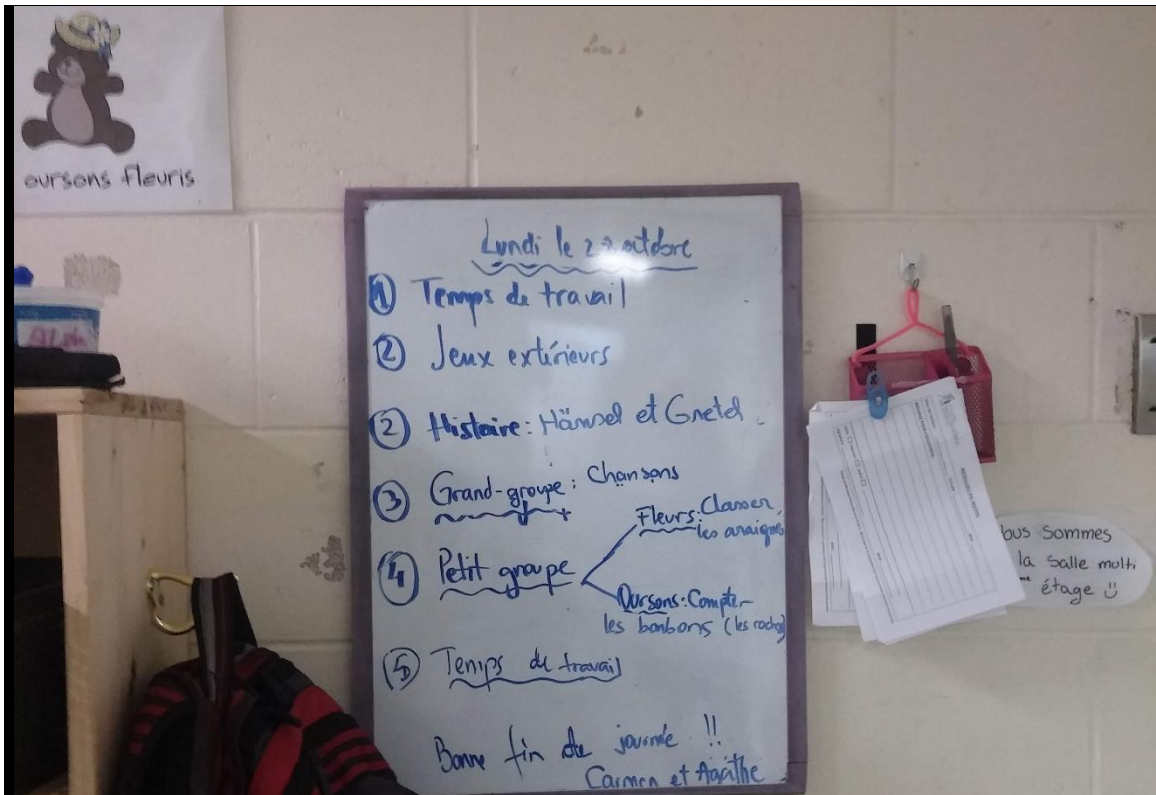 oursons fleuris
Lundi le 22 octobre
① Temps de travail
② Jeux extérieurs
② Histoire: Hänsel et Gretel
③ Grand-groupe: Chansons
④ Petit groupe
Fleurs: Classer
les araignées
Oursons: Compter
les bonbons (les roches)
⑤ Temps de travail
Bonne fin de journée !!
Carmen et Agathe
ous sommes
la salle multi
étage